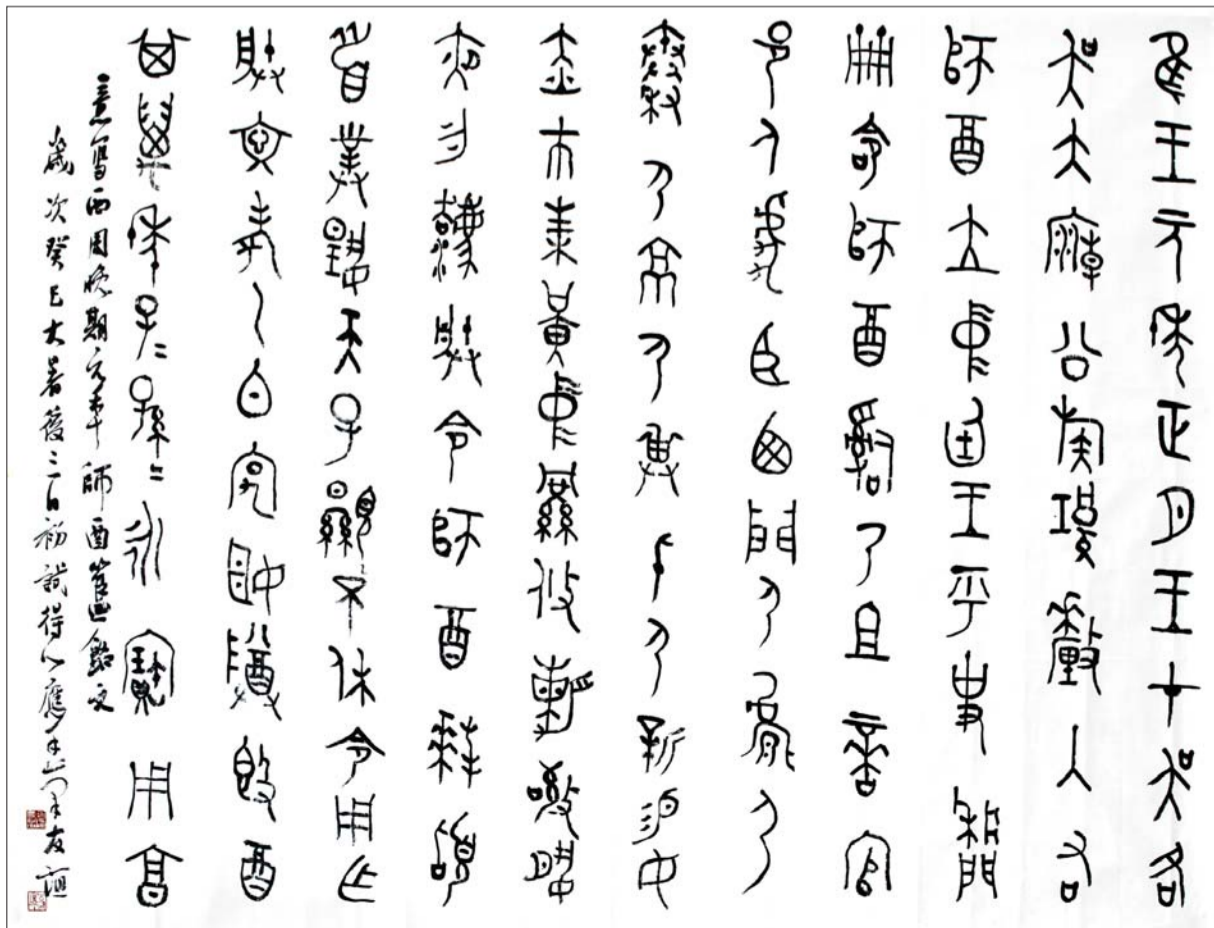 隹王元年正月王才吳各
吳大廟公族釐入右
師酉立中廷王乎史牆
冊命師酉嗣乃且啻官
邑人虎臣西門尸尸
秦尸京尸身尸新易女
赤巿朱黃中絅攸勒敬夙
夜勿灋朕令師酉拜䭫
首對揚天子不顯休令用乍
朕文考乙白宄姬尊簋酉
其萬年子=孫=永寶用享
意寫西周晚期元年師酉簋銘文
歲次癸巳大暑後三日初試得心應手友誼